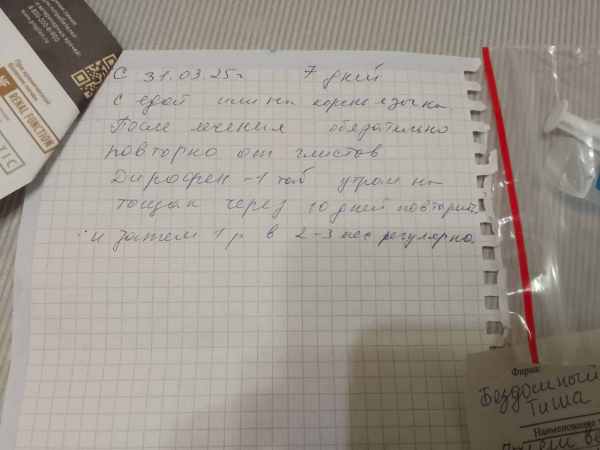 С 31.03.25г 7 дней
с едой или на корень языка.
После лечения обязательно
повторно от глистов
Дирофен - 1 таб утром на
тощак через 10 дней повторить
и затем 1 р в 2-3 мес регулярно.
RENAL FUNCTION
TIC
Фирма:
Бездомный
Тиша
Наименование